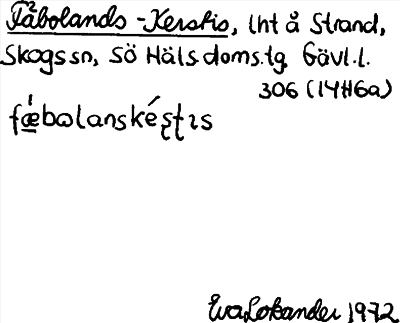 Fäbolands-Kerstis, lht å Strand,
Skogs sn, Sö Häls. doms. tg. Gävl. l.
306 (14H6a)
fæ̀bωlanskéʂʈıs
Eva Lokander 1972